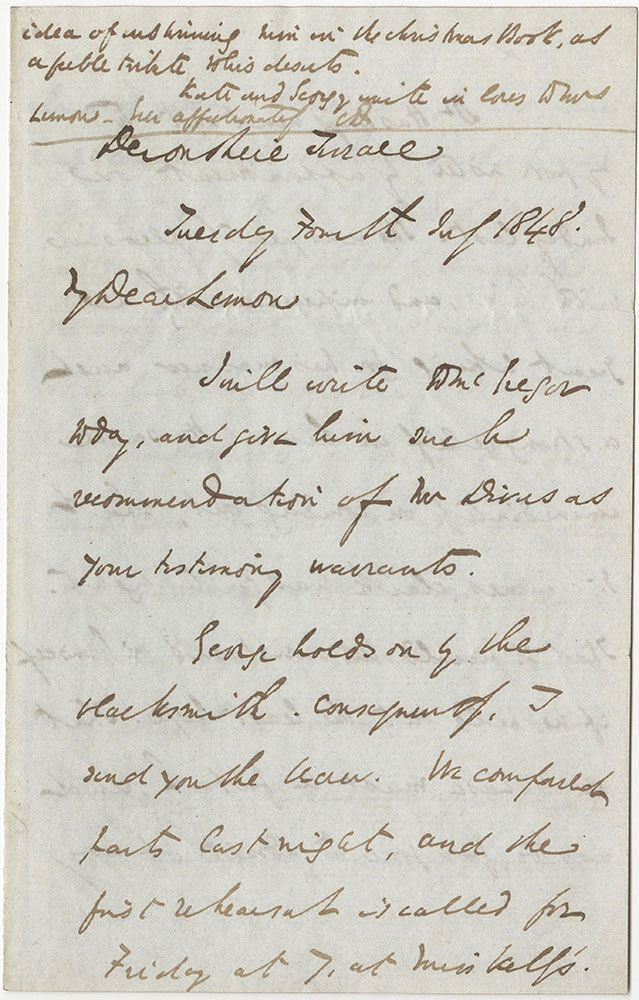 idea of enshrining him in the Christmas Book, as
a feeble tribute to his deserts.
Kate and Georgy unite in loves to Mrs
Lemon - Ever affectionately CD
Devonshire Terrace
Tuesday Fourth July 1848.
My Dear Lemon
I will write to Mc Gregor
today, and give him such
recommendation of Mr Divers as
your testimony warrants.
George holds on by the
blacksmith. Consequently, I
send you the Beau. We compared
parts last night, and the
first rehearsal is called for
Friday at 7, at Miss Kelly's.